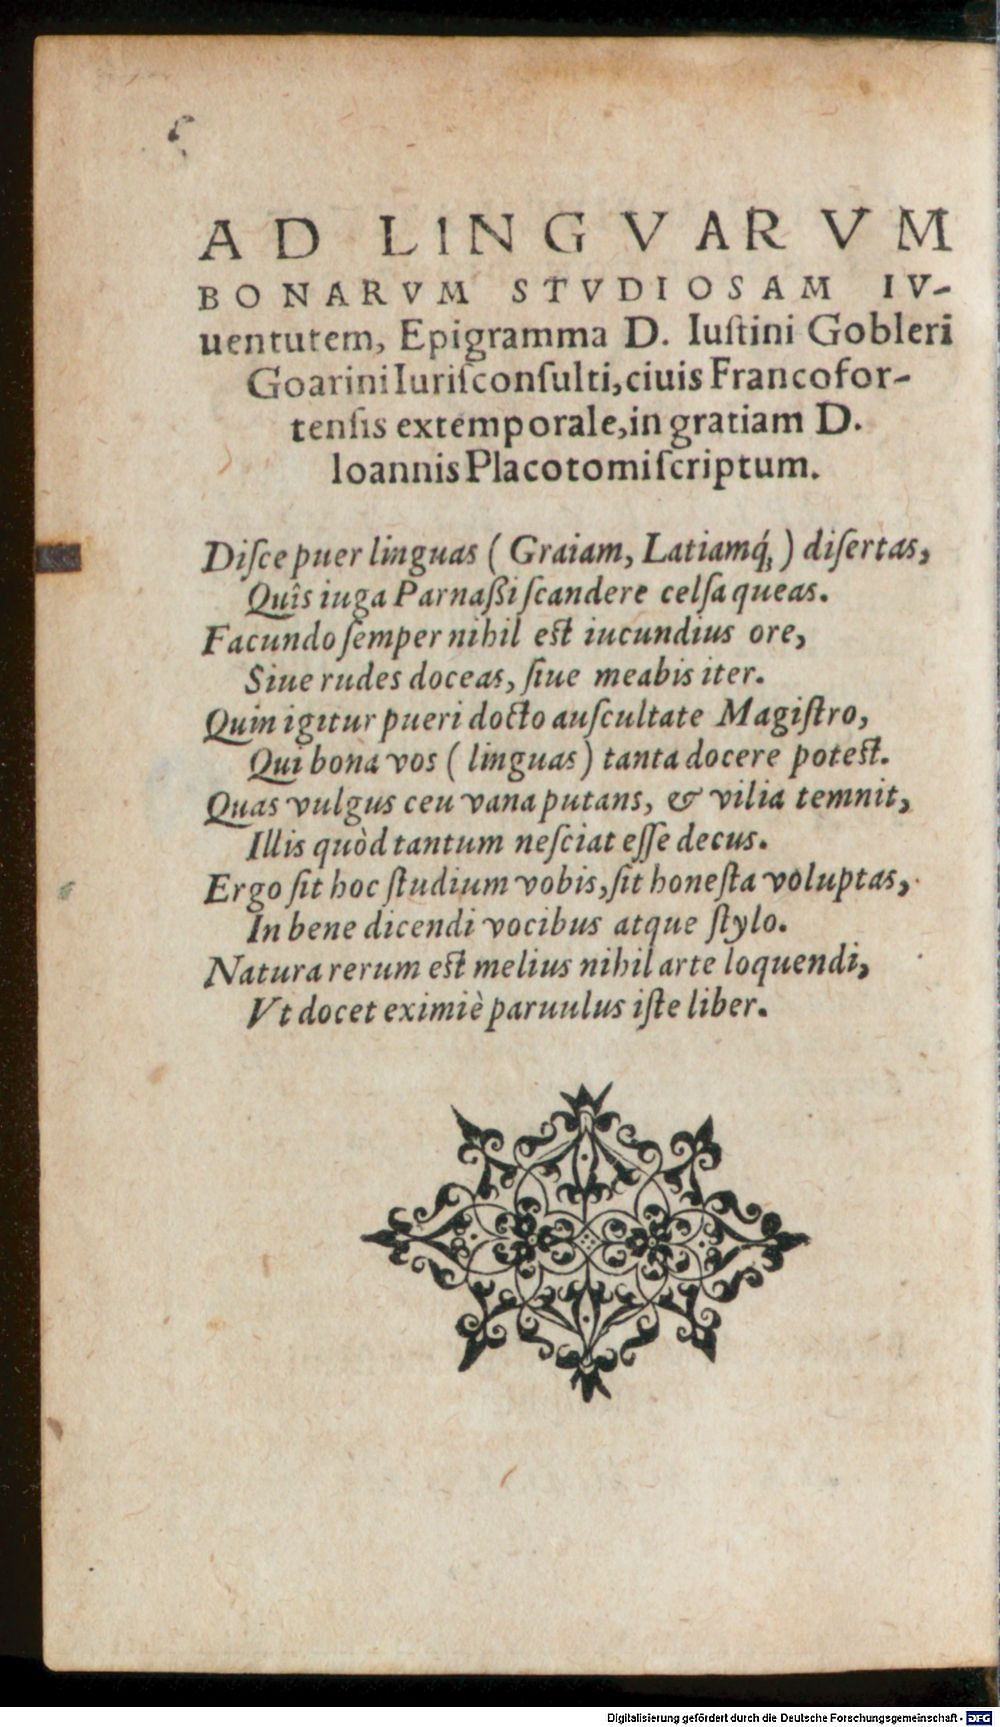 AD LINGVARVM
BONARVM STVDIOSAM IV-
uentutem, Epigramma D. Iuſtini Gobleri
Goarini Iuriſconſulti, ciuis Francofor-
tenſis extemporale, in gratiam D.
Ioannis Placotomi ſcriptum.
Diſce puer linguas ( Graiam, Latiamq́ꝫ ) diſertas,
Quîs iuga Parnaßi ſcandere celſa queas.
Facundo ſemper nihil est iucundius ore,
Siue rudes doceas, ſiue meabis iter.
Quin igitur pueri docto auſcultate Magiſtro,
Qui bona vos ( linguas ) tanta docere potest.
Quas vulgus ceu vana putans, & vilia temnit,
Illis quòd tantum neſciat eſſe decus.
Ergo ſit hoc ſtudium vobis, ſit honeſta voluptas,
In bene dicendi vocibus atque ſtylo.
Natura rerum est melius nihil arte loquendi,
Vt docet eximiè paruulus iſte liber.
Digitalisierung gefördert durch die Deutsche Forschungsgemeinschaft - DFG